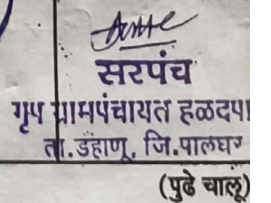 सरपंच
गृप ग्रामपंचायत हळदपा
ता. डहाणू, जि.पालघर
(पुढे चालू)